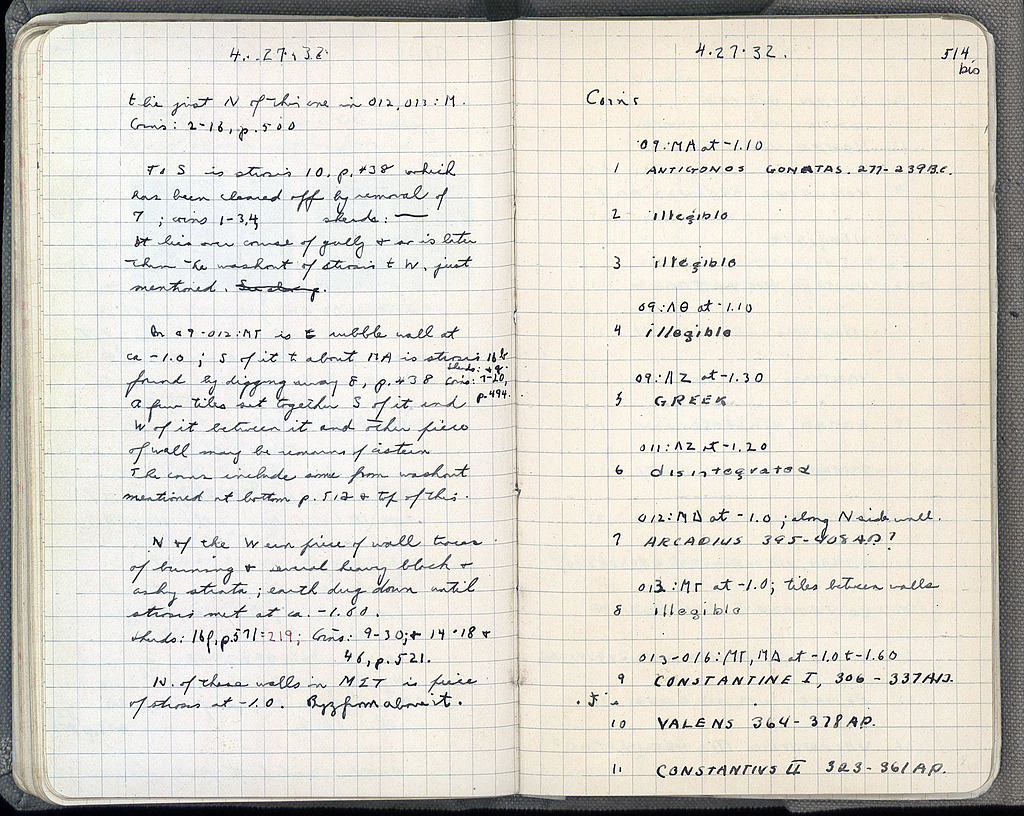 4.27.32
the first N of this one in 012, 013: M.
Coins: 2-16, p. 500
To S is strosis 10. p. 438 which
has been cleared off by removal of
7; coins 1-3,4 sherds: —
It lies over course of gully & so is later
than the washout of strosis to W. just
mentioned.
On 09-012:ΜΓ is rubble wall at
ca -1.0; S of it to about MA is strosis 16
found by digging away 8, p. 438 Coins: 7-20,
p. 494.
A few tiles set together S of it and
W of it between it and other piece
of wall may be remains of cistern
The coins include some from washout
mentioned at bottom p. 512 & top of this.
N of the W ern piece of wall traces
of burning & several heavy black &
ashy strata; earth dug down until
strosis met at ca. -1.60.
sherds: 16, p. 571=219; Coins: 9-30; + 14-18 &
46, p. 521.
N. of these walls in is piece
of strosis at -1.0. Byz from above it.
4.27.32.
514
bis
Coins
09:MA at -1.10
1 ANTIGONOS GONATAS. 277-239 B.C.
2 illegible
3 illegible
09:ΛΘ at -1.10
4 illegible
09:ΛZ at -1.30
5 GREEK
011:ΛZ at -1.20
6 disintegrated
012:MΔ at -1.0; along N side wall.
7 ARCADIUS 395-408 A.D?
013:ΜΓ at -1.0; tiles between walls
8 illegible
013-016:ΜΓ, MΔ at -1.0 to -1.60
9 CONSTANTINE I, 306 - 337 A.D.
10 VALENS 364 - 378 A.D.
11 CONSTANTIUS II 323-361 A.D.